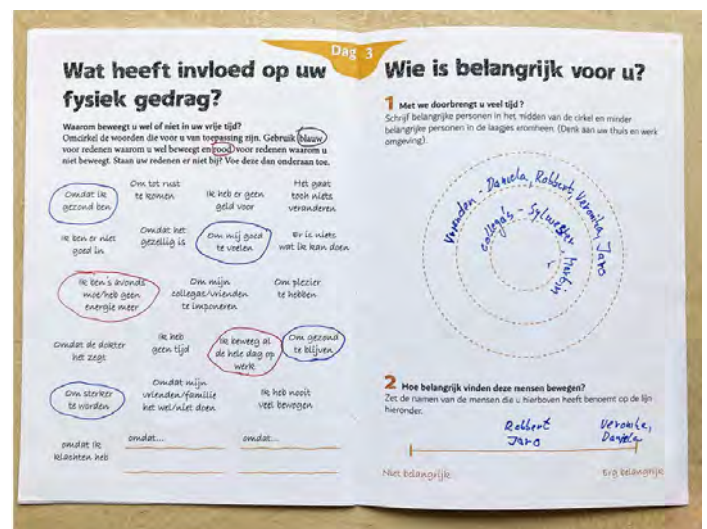 Dag 3
Wat heeft invloed op uw
fysiek gedrag?
Waarom beweegt u wel of niet in uw vrije tijd?
Omcirkel de woorden die voor u van toepassing zijn. Gebruik blauw
voor redenen waarom u wel beweegt en rood voor redenen waarom u
niet beweegt. Staan uw redenen er niet bij? Voe deze dan onderaan toe.
Omdat ik
gezond ben
Om tot rust
te komen
Ik heb er geen
geld voor
Het gaat
toch niets
veranderen
Ik ben er niet
goed in
Omdat het
gezellig is
Om mij goed
te voelen
Er is niets
wat ik kan doen
Ik ben 's avonds
moe/heb geen
energie meer
Om mijn
collegas/vrienden
te imponeren
Om plezier
te hebben
Omdat de dokter
het zegt
Ik heb
geen tijd
Ik beweeg al
de hele dag op
werk
Om gezond
te blijven
Om sterker
te worden
Omdat mijn
vrienden/familie
het wel/niet doen
Ik heb nooit
veel bewogen
omdat ik
klachten heb
omdat...
omdat...
Wie is belangrijk voor u?
1 Met we doorbrengt u veel tijd?
Schrijf belangrijke personen in het midden van de cirkel en minder
belangrijke personen in de laagjes eromheen. (Denk aan uw thuis en werk
omgeving).
Vrienden - Daniela, Robbert, Veronika, Jaro
collega's - Sylwester, Marcin
2 Hoe belangrijk vinden deze mensen bewegen?
Zet de namen van de mensen die u hierboven heeft benoemt op de lijn
hieronder.
Robbert
Jaro
Veronika,
Daniela
Niet belangrijk
Erg belangrijk